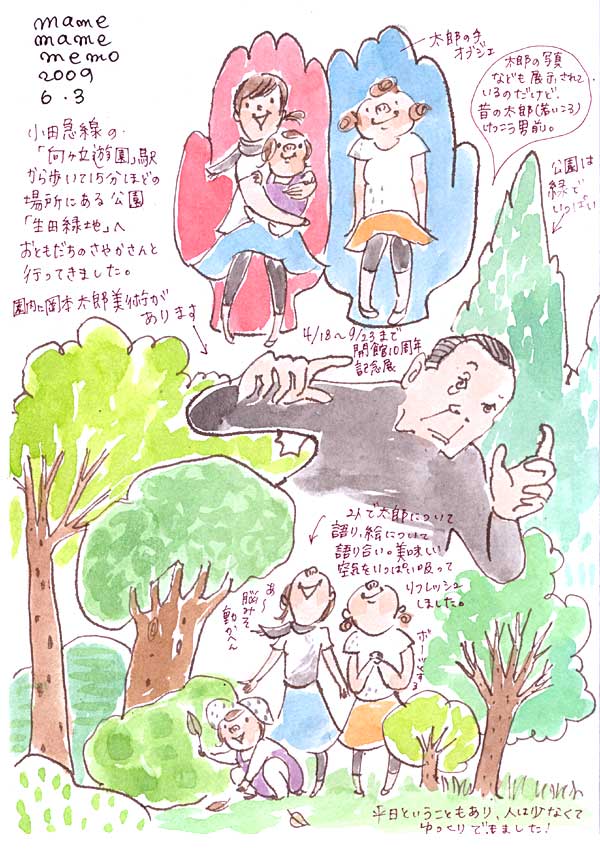 mame
mame
memo
2009
6.3
小田急線の
「向ヶ丘遊園」駅
から歩いて15分ほどの
場所にある公園
「生田緑地」へ
おともだちのさやかさんと
行ってきました。
園内に岡本太郎美術が
あります
太郎の手
オブジェ
太郎の写真
なども展示されて
いるのだけど、
昔の太郎(若いころ)
けっこう男前。
公園は
緑で
いっぱい
4/18〜9/23まで
開館10周年
記念展
2人で太郎について
語り、絵について
語り合い。美味しい
空気をいっぱい吸って
リフレッシュ
しました。
あ〜
脳みそ
動かへん
ボーッとする
平日ということもあり、人は少なくて
ゆっくりできました!